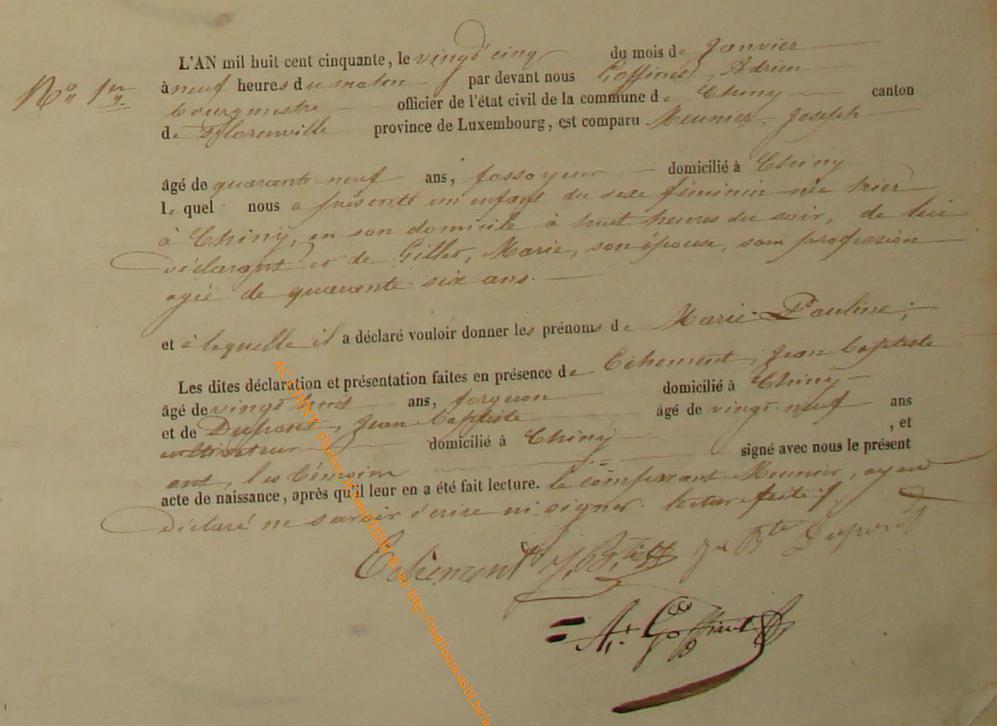 L'AN mil huit cent cinquante, le vingt cinq du mois de Janvier
No 1er
à neuf heures du matin par devant nous Goffinet, Adrien
bourgmestre officier de l'état civil de la commune de Chiny canton
de Florenville province de Luxembourg, est comparu Meunier, Joseph
âgé de quarante neuf ans, fossoyeur domicilié à Chiny
lequel nous a présenté un enfant du sexe féminin née hier
à Chiny, en son domicile à huit heures du soir, de lui
déclarant et de Gillet, Marie, son épouse, sans profession
agée de quarante six ans.
et à laquelle il a déclaré vouloir donner les prénoms de Marie-Pauline;
Les dites déclaration et présentation faites en présence de Echement, Jean Baptiste
âgé de vingt huit ans, forgeron domicilié à Chiny
et de Dupont, Jean Baptiste âgé de vingt-neuf ans
cultivateur domicilié à Chiny, et
ont, les témoins signé avec nous le présent
acte de naissance, après qu'il leur en a été fait lecture. le comparant Meunier, ayant
déclaré ne savoir écrire ni signer. lecture faite.
Echement J. Btte Jn Bte Dupont
Ad. Goffinet